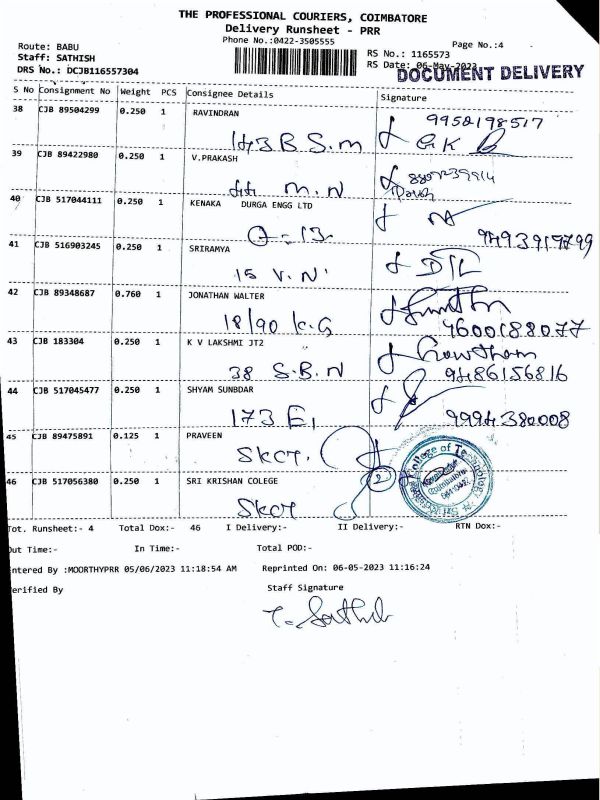 THE PROFESSIONAL COURIERS, COIMBATORE
Delivery Runsheet - PRR
Phone No.:0422-3505555
Page No.:4
Route: BABU
Staff: SATHISH
DRS No.: DCJB116557304
RS No.: 1165573
RS Date: 06-May-2023
DOCUMENT DELIVERY
S No Consignment No Weight PCS Consignee Details Signature
38 CJB 89504299 0.250 1 RAVINDRAN
143 B.S.M
9952198517
G.K
39 CJB 89422980 0.250 1 V.PRAKASH
M.N
40 CJB 517044111 0.250 1 KENAKA DURGA ENGG LTD
9493919799
41 CJB 516903245 0.250 1 SRIRAMYA
15 V.N
42 CJB 89348687 0.760 1 JONATHAN WALTER
18/90 K.G
9600188077
43 CJB 183304 0.250 1 K V LAKSHMI JT2
38 S.B.N
Gowtham
9486156816
44 CJB 517045477 0.250 1 SHYAM SUNBDAR
173 E1
9994380008
45 CJB 89475891 0.125 1 PRAVEEN
SKCT.
46 CJB 517056380 0.250 1 SRI KRISHAN COLEGE
SKCT
College of Technology
Coimbatore
Tot. Runsheet:- 4 Total Dox:- 46 I Delivery:- II Delivery:- RTN Dox:-
Out Time:- In Time:- Total POD:-
Entered By :MOORTHYPRR 05/06/2023 11:18:54 AM Reprinted On: 06-05-2023 11:16:24
Verified By Staff Signature